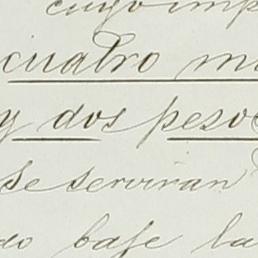 cuyo imp
cuatro mi
y dos pesos
se serviran
do base la